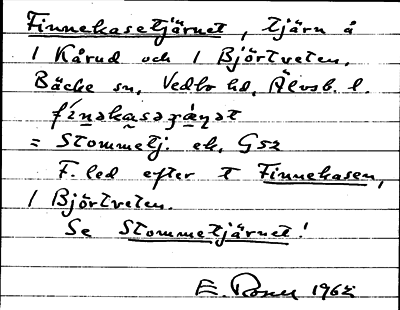 Finnekasetjärnet, tjärn å
1 Kårud och 1 Björtveten,
Bäcke sn, Vedbo hd, Älvsb. l.
= Stommetj. ek, G52
F. led efter t Finnekasen,
1 Björtveten.
Se Stommetjärnet!
E. 1962